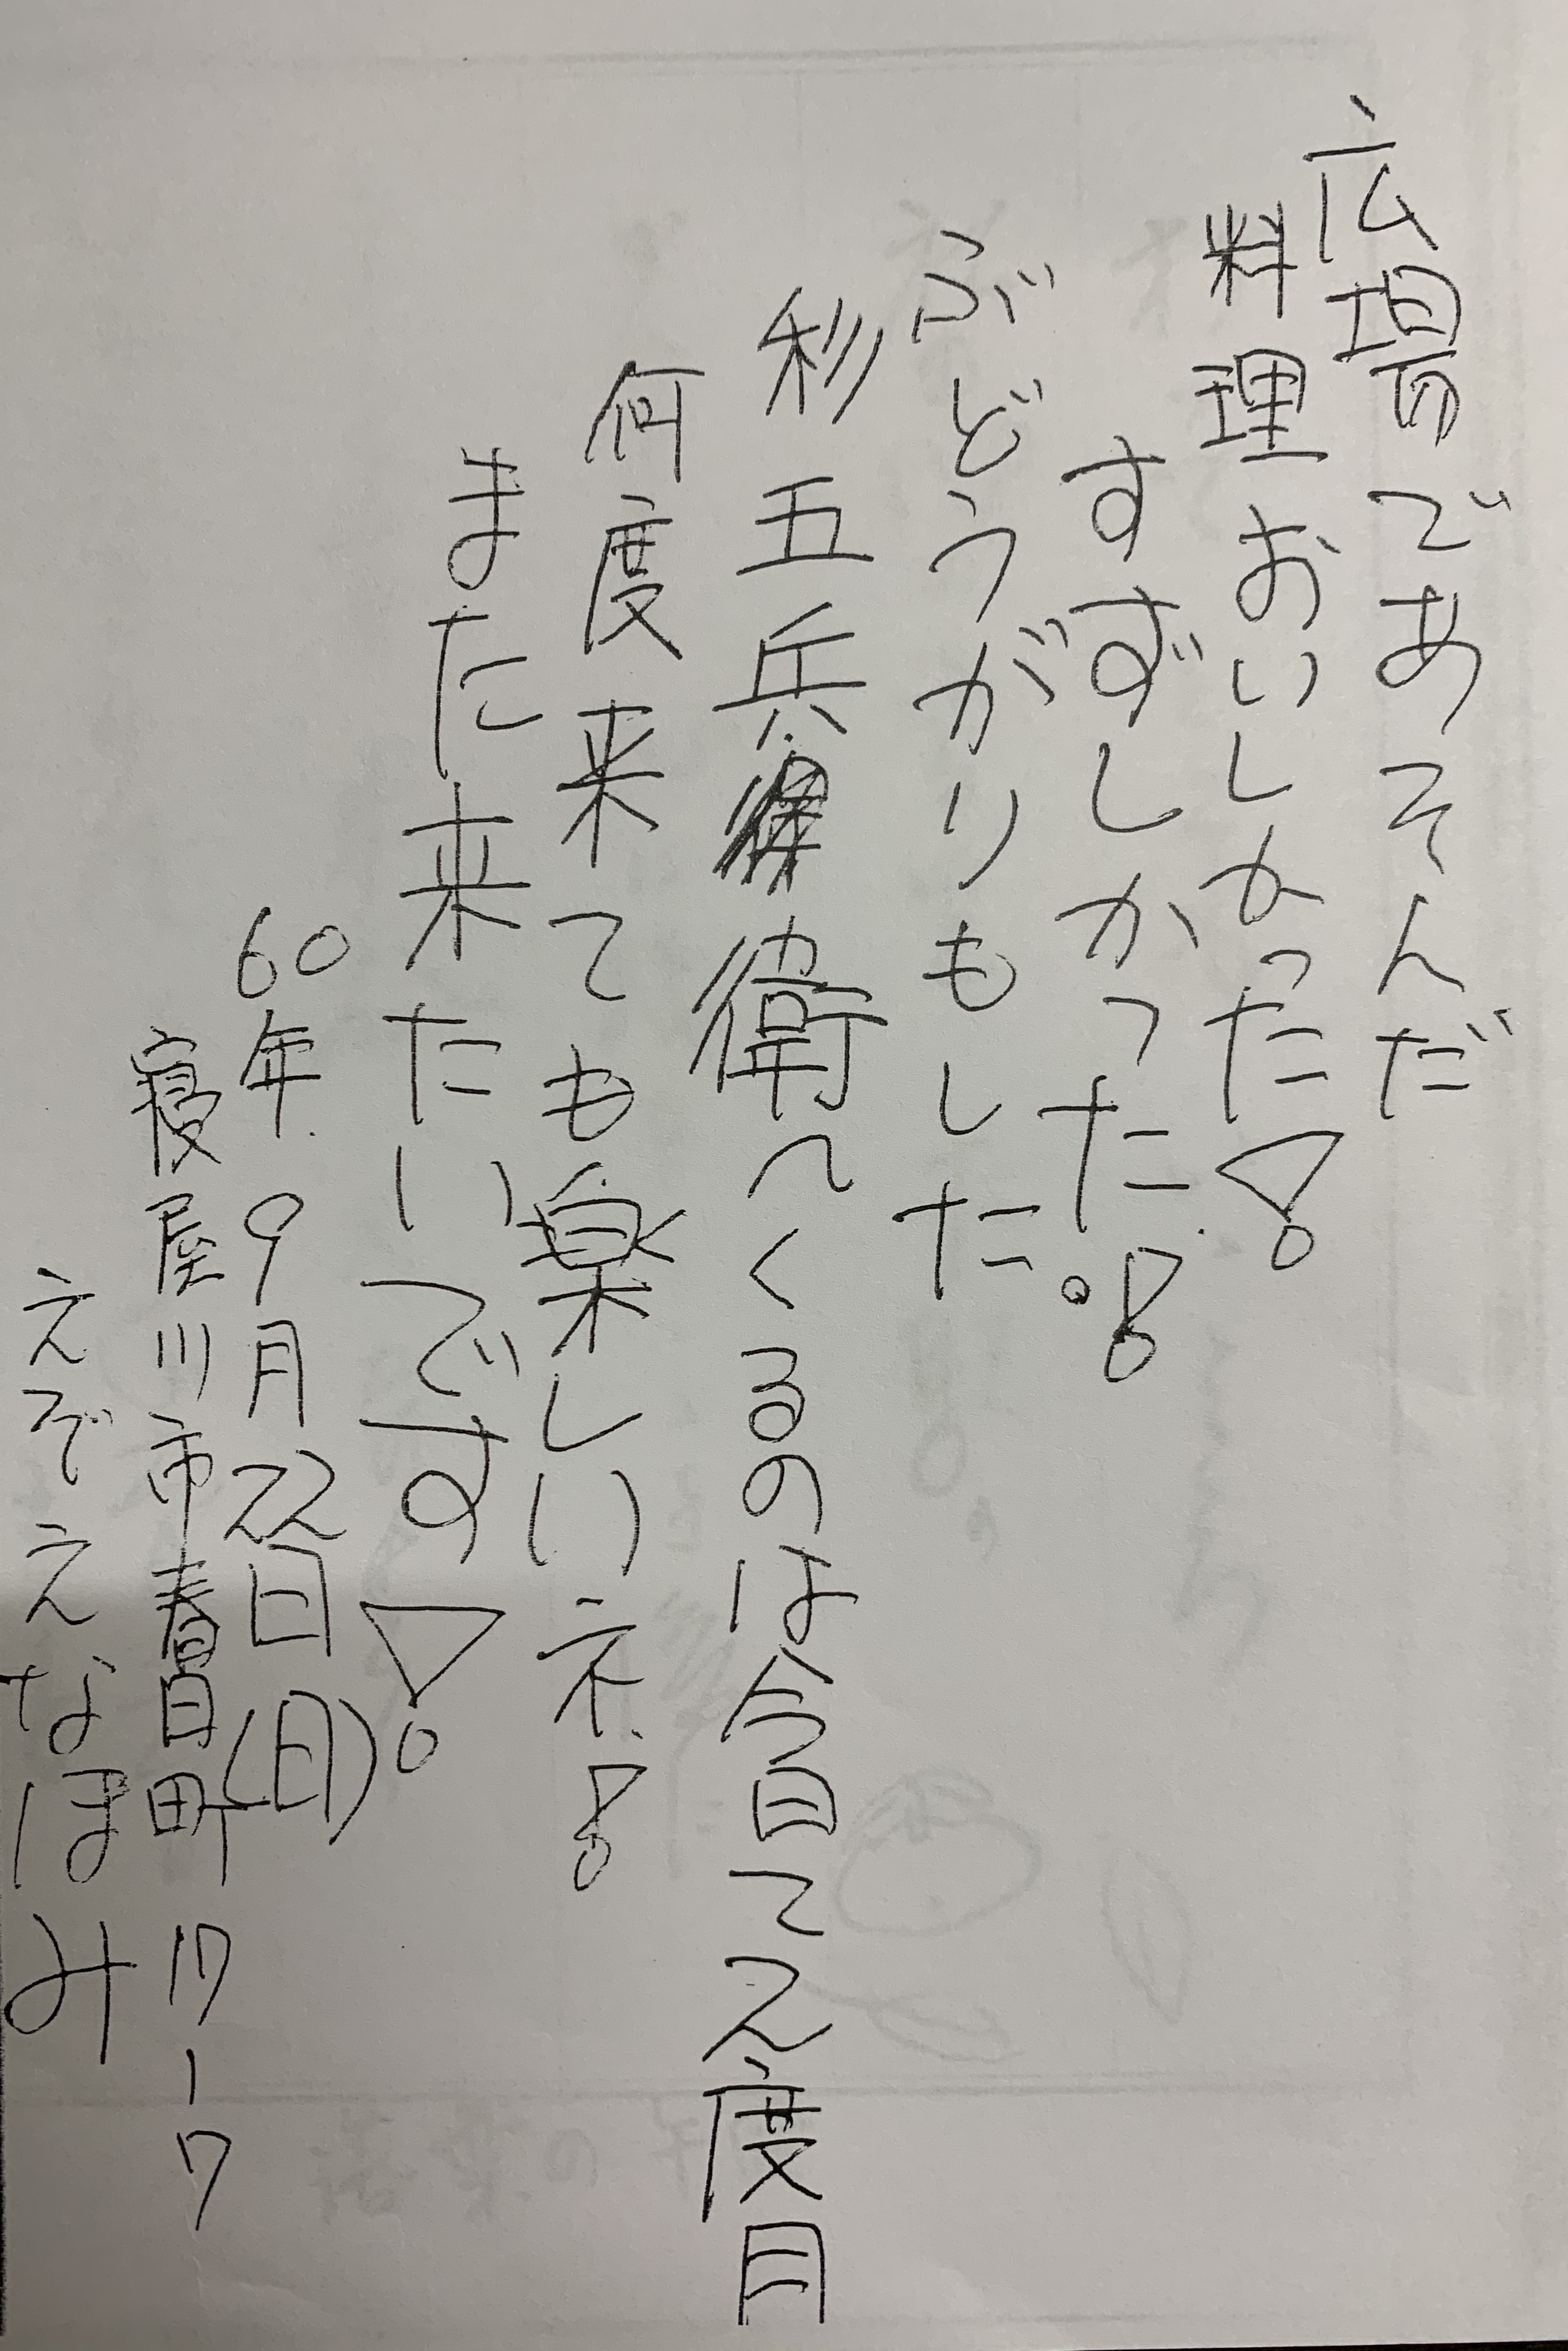 広場であそんだ
料理おいしかった!
すずしかった。!
ぶどうがりもした
彩五兵衛へくるのは今日で2度目
何度来ても楽しいネ!
また来たいです!
60年9月22日(日)
寝屋川市春日町17-7
えぞえなほみ